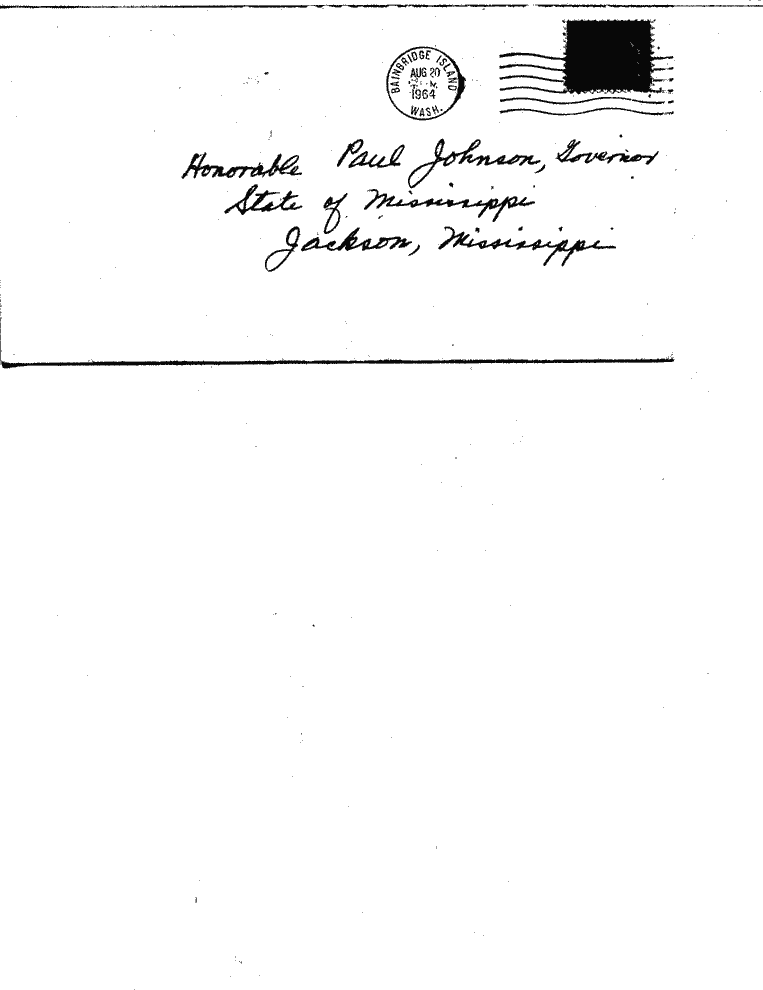 BAINBRIDGE ISLAND
AUG 20
1964
WASH.
Honorable Paul Johnson, Governor
State of Mississippi
Jackson, Mississippi